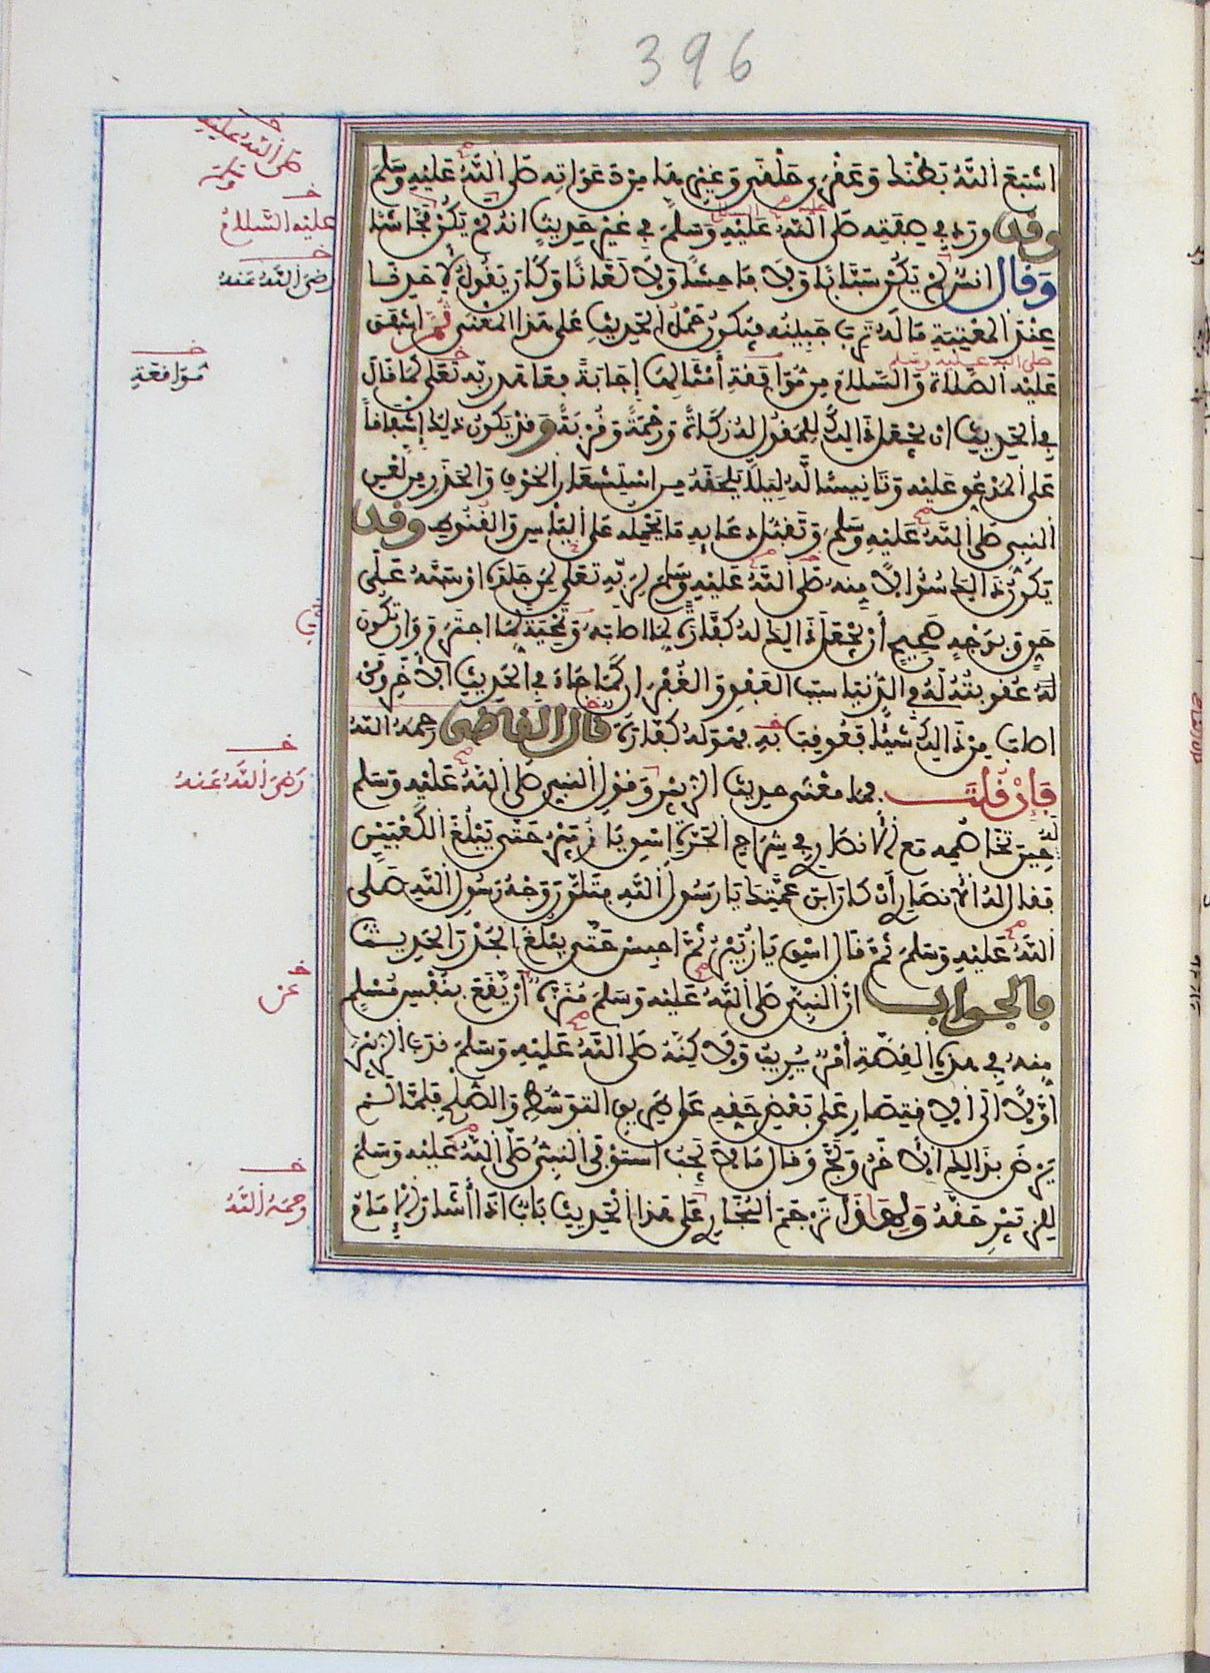 396
اشبع الله بطنك وعقرى حلقى وغيرها من دعواته صلى الله عليه وسلم
وقد ورد في صفته صلى الله عليه وسلم في غير حديث انه لم يكن فحاشا
وقال انس لم يكن سبابا ولا فاحشا ولا لعانا وكان يقول لأحدنا
عند المعتبة ما له ترب جبينه فيكون حمل الحديث على هذا المعنى ثم اشفق
صلى الله عليه وسلم
عليه الصلاة والسلام من موافقة أمثالها إجابة فعاهد ربه تعلى كما قال
في الحديث ان يجعل ذالك للمقول له زكاة ورحمة وقربة وقد يكون ذلك إشفاقا
على المدعو عليه وتانيسا له ليلا يلحقه من استشعار الخوف والحذر من لعن
النبي صلى الله عليه وسلم وتقبل دعايه ما يحمله على الياس والقنوط وقد
يكون ذالك سؤالا منه صلى الله عليه وسلم لربه تعلى لمن جلده او سبه على
حق وبوجه صحيح أن يجعل ذالك له كفارة لما اصابه وتمحية لما اجترم وان تكون
له عقوبته له في الدنيا سبب العفو والغفران كما جاء في الحديث الأخر ومن
اصاب من ذالك شيئا فعوقب به فهو له كفارة قال القاضي رحمه الله
فإن قلت فما معنى حديث الزبير وقول النبي صلى الله عليه وسلم
له حين تخاصمه مع الأنصاري في شراج الحرة اسق يا زبير حتى يبلغ الكعبين
فقال له الأنصاري أن كان ابن عمتك يا رسول الله فتلون وجه رسول الله صلى
الله عليه وسلم ثم قال اسق يا زبير ثم احبس حتى يبلغ الجدر الحديث
فالجواب ان النبي صلى الله عليه وسلم منزه أن يقع بنفس مسلم
منه في هذه القصة أمر يريب ولاكنه صلى الله عليه وسلم ندب الزبير
أولا الى الاقتصار على بعض حقه على طريق التوسط والصلح فلما لم
يرض بذالك الأخر ولج وقال ما لا يجب استوفى النبي صلى الله عليه وسلم
للزبير حقه ولهاذا ترجم البخاري على هذا الحديث باب اذا أشار الإمام
صلى الله عليه
عليه السلام
رضي الله عنه
موافقة
في
رضي الله عنه
عن
رحمه الله